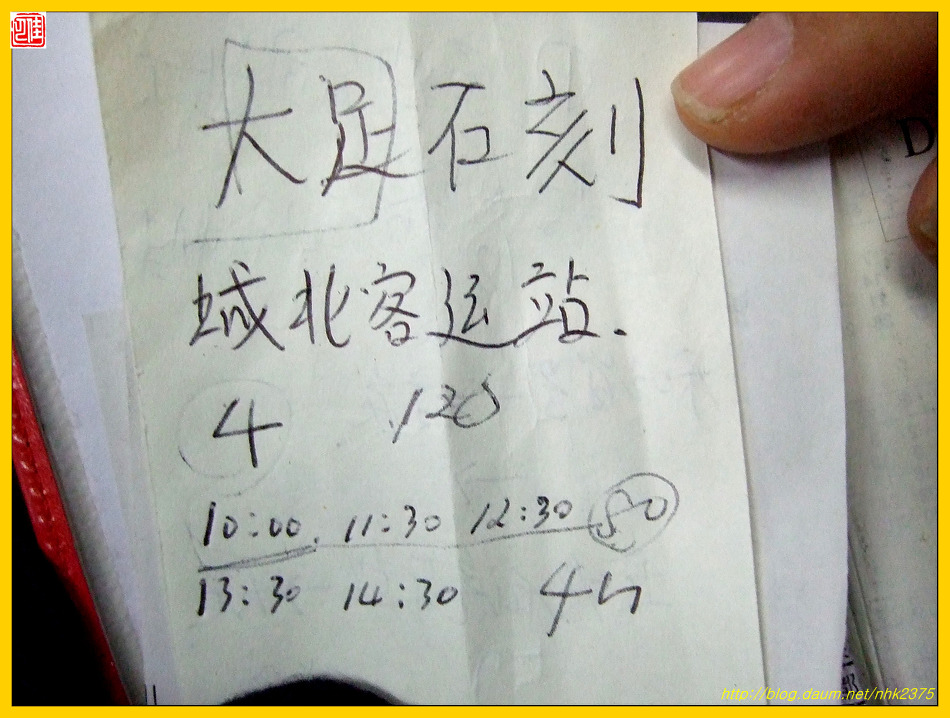 大足石刻
城北客运站.
4 120
10:00. 11:30 12:30 50
13:30 14:30 4h
D
http://blog.daum.net/nhk2375